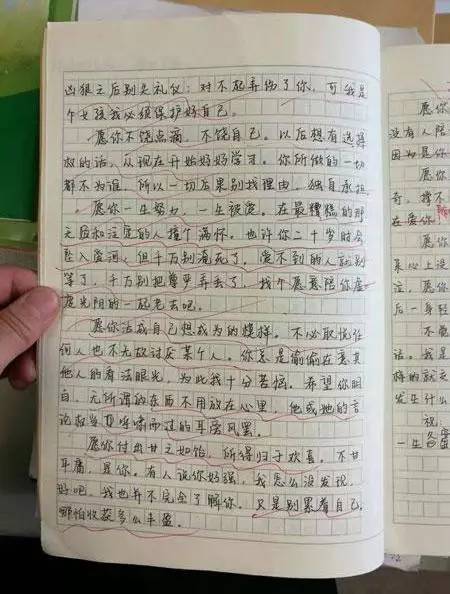 凶狠之后别失礼仪：对不起弄伤了你，可我是
个女孩我必须保护好自己。
愿你不饶点滴，不饶自己。以后想有选择
权的话，从现在开始好好学习。你所做的一切
都不为谁，所以一切后果别找理由，独自承担
愿你一生努力，一生被爱。在最糟糕的那
之后和注定的人撞个满怀。也许你二十岁时会
坠入爱河，但千万别淹死了，爱不到的人就别
等了，千万别把尊严弄丢了，找个愿意陪你虚
度光阴的一起老去吧。
愿你活成自己想成为的模样。不必取悦任
何人也不无故讨厌某个人。你总是偷偷在意其
他人的看法眼光，为此我十分苦恼。希望你明
白，无所谓的东西不用放在心里，他或她的言
论权当耳
呼啸而过的耳旁风罢。
愿你付出甘之如饴，所得归于欢喜。不甘
平庸，是你。有人说你好强，我怎么没发现，
好吧，我也并不完全了解你。只是别累着自己，
哪怕收获多么丰盈。
愿你
没有人陪
因为是你
愿你
奇，撑不
在爱你
愿你
某心上没
注，愿你
后一身轻
不要
话。我是
梅的就交
发生什么
祝
一生